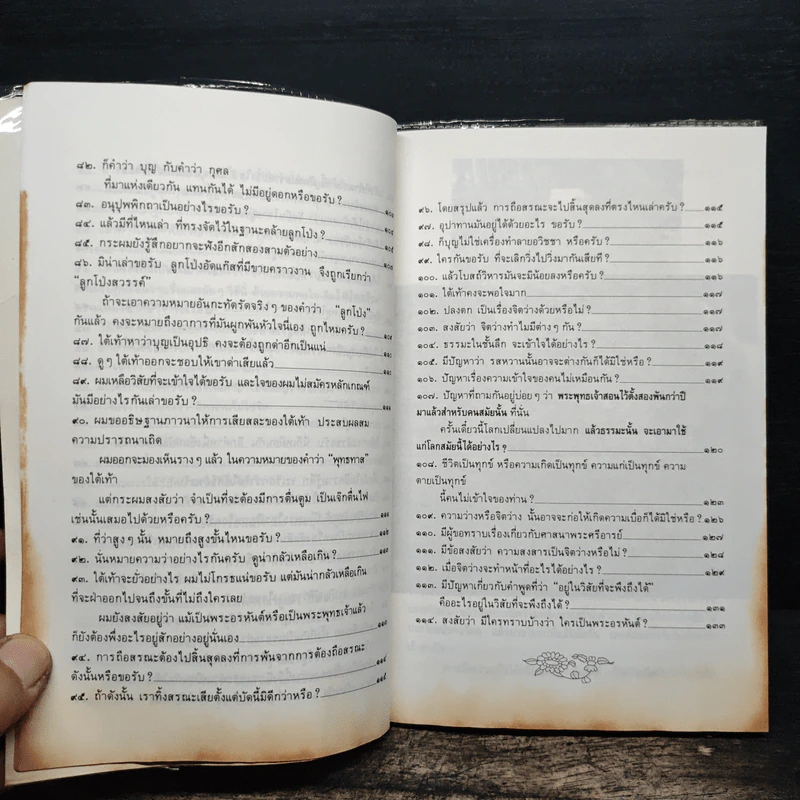 ๘๒. ก็คำว่า บุญ กับคำว่า กุศล
ที่มาแห่งเดียวกัน แทนกันได้ ไม่มีอยู่ดอกหรือขอรับ ?
๘๓. อนุปุพพิกถาเป็นอย่างไรขอรับ ?
๘๔. แล้วมีที่ไหนเล่า ที่ทรงจัดไว้ในฐานะคล้ายลูกโป่ง ?
๘๕. กระผมยังรู้สึกอยากจะฟังอีกสักสองสามตัวอย่าง
๘๖. มิน่าเล่าขอรับ ลูกโป่งอัดแก๊สที่มีขายคราวงาน จึงถูกเรียกว่า
"ลูกโป่งสวรรค์"
ถ้าจะเอาความหมายอันกะทัดรัดจริงๆ ของคำว่า "ลูกโป่ง"
กันแล้ว คงจะหมายถึงอาการที่มันผูกพันหัวใจนี้เอง ถูกไหมครับ ?
๘๗. ใต้เท้าหาว่าบุญเป็นอุปธิ คงจะต้องถูกด่าอีกเป็นแน่
๘๘. ดูๆ ใต้เท้าออกจะชอบให้เขาด่าเสียแล้ว
๘๙. ผมเหลือวิสัยที่จะเข้าใจได้ขอรับ และใจของผมไม่สมัครหลักเกณฑ์
มันมีอย่างไรกันเล่าขอรับ ?
๙๐. ผมขออธิษฐานภาวนาให้การเสียสละของใต้เท้า ประสบผลสม
ความปรารถนาเถิด
ผมออกจะมองเห็นรางๆ แล้ว ในความหมายของคำว่า "พุทธทาส"
ของใต้เท้า
แต่กระผมสงสัยว่า จำเป็นที่จะต้องมีการตื่นตูม เป็นเจ๊กตื่นไฟ
เช่นนั้นเสมอไปด้วยหรือครับ ?
๙๑. ที่ว่าสูงๆ นั้น หมายถึงสูงขั้นไหนขอรับ ?
๙๒. นั่นหมายความว่าอย่างไรกันครับ ดูน่ากลัวเหลือเกิน ?
๙๓. ใต้เท้าจะยั่วอย่างไร ผมไม่โกรธแน่ขอรับ แต่มันน่ากลัวเหลือเกิน
ที่จะฝ่าออกไปจนถึงขั้นที่ไม่ถึงใครเลย
ผมยังสงสัยอยู่ว่า แม้เป็นพระอรหันต์หรือเป็นพระพุทธเจ้าแล้ว
ก็ยังต้องพึ่งอะไรอยู่สักอย่างอยู่นั่นเอง
๙๔. การถือสรณะต้องไปสิ้นสุดลงที่การพ้นจากการต้องถือสรณะ
ดังนั้นหรือขอรับ ?
๙๕. ถ้าดังนั้น เราทิ้งสรณะเสียตั้งแต่บัดนี้มิดีกว่าหรือ ?
๙๖. โดยสรุปแล้ว การถือสรณะจะไปสิ้นสุดลงที่ตรงไหนเล่าครับ ? ๑๑๕
๙๗. อุปาทานมันอยู่ได้ด้วยอะไร ขอรับ ? ๑๑๕
๙๘. ก็บุญไม่ใช่เครื่องทำลายอวิชชา หรือครับ ? ๑๑๖
๙๙. ใครกันขอรับ ที่จะเลิกวิ่งไปวิ่งมากันเสียที ? ๑๑๖
๑๐๐. แล้วโบสถ์วิหารมันจะมีน้อยลงหรือครับ ? ๑๑๖
๑๐๑. ใต้เท้าคงจะพอใจมาก ๑๑๗
๑๐๒. ปลงตก เป็นเรื่องจิตว่างด้วยหรือไม่ ? ๑๑๗
๑๐๓. สงสัยว่า จิตว่างทำไมมีต่างๆ กัน ? ๑๑๗
๑๐๔. ธรรมะในชั้นลึก จะเข้าใจได้อย่างไร ? ๑๑๘
๑๐๕. มีปัญหาว่า รสหวานนั้นอาจจะต่างกันก็ได้มิใช่หรือ ? ๑๑๙
๑๐๖. ปัญหาเรื่องความเข้าใจของคนไม่เหมือนกัน ? ๑๑๙
๑๐๗. ปัญหาที่ถามกันอยู่บ่อยๆ ว่า พระพุทธเจ้าสอนไว้ตั้งสองพันกว่าปี
มาแล้วสำหรับคนสมัยนั้น ที่นั่น
ครั้นเดี๋ยวนี้โลกเปลี่ยนแปลงไปมาก แล้วธรรมะนั้น จะเอามาใช้
แก่โลกสมัยนี้ได้อย่างไร ? ๑๒๐
๑๐๘. ชีวิตเป็นทุกข์ หรือความเกิดเป็นทุกข์ ความแก่เป็นทุกข์ ความ
ตายเป็นทุกข์
นี้คนไม่เข้าใจของท่าน ? ๑๒๓
๑๐๙. ความว่างหรือจิตว่าง นั้นอาจจะก่อให้เกิดความเบื่อก็ได้มิใช่หรือ ? ๑๒๖
๑๑๐. มีผู้ขอทราบเรื่องเกี่ยวกับศาสนาพระศรีอารย์ ๑๒๗
๑๑๑. มีข้อสงสัยว่า ความสงสารเป็นจิตว่างหรือไม่ ? ๑๒๘
๑๑๒. เมื่อจิตว่างจะทำหน้าที่อะไรได้อย่างไร ? ๑๒๙
๑๑๓. มีปัญหาเกี่ยวกับคำพูดที่ว่า "อยู่ในวิสัยที่จะพึงถึงได้"
คืออะไรอยู่ในวิสัยที่จะพึงถึงได้ ? ๑๓๑
๑๑๔. สงสัยว่า มีใครทราบบ้างว่า ใครเป็นพระอรหันต์ ? ๑๓๓